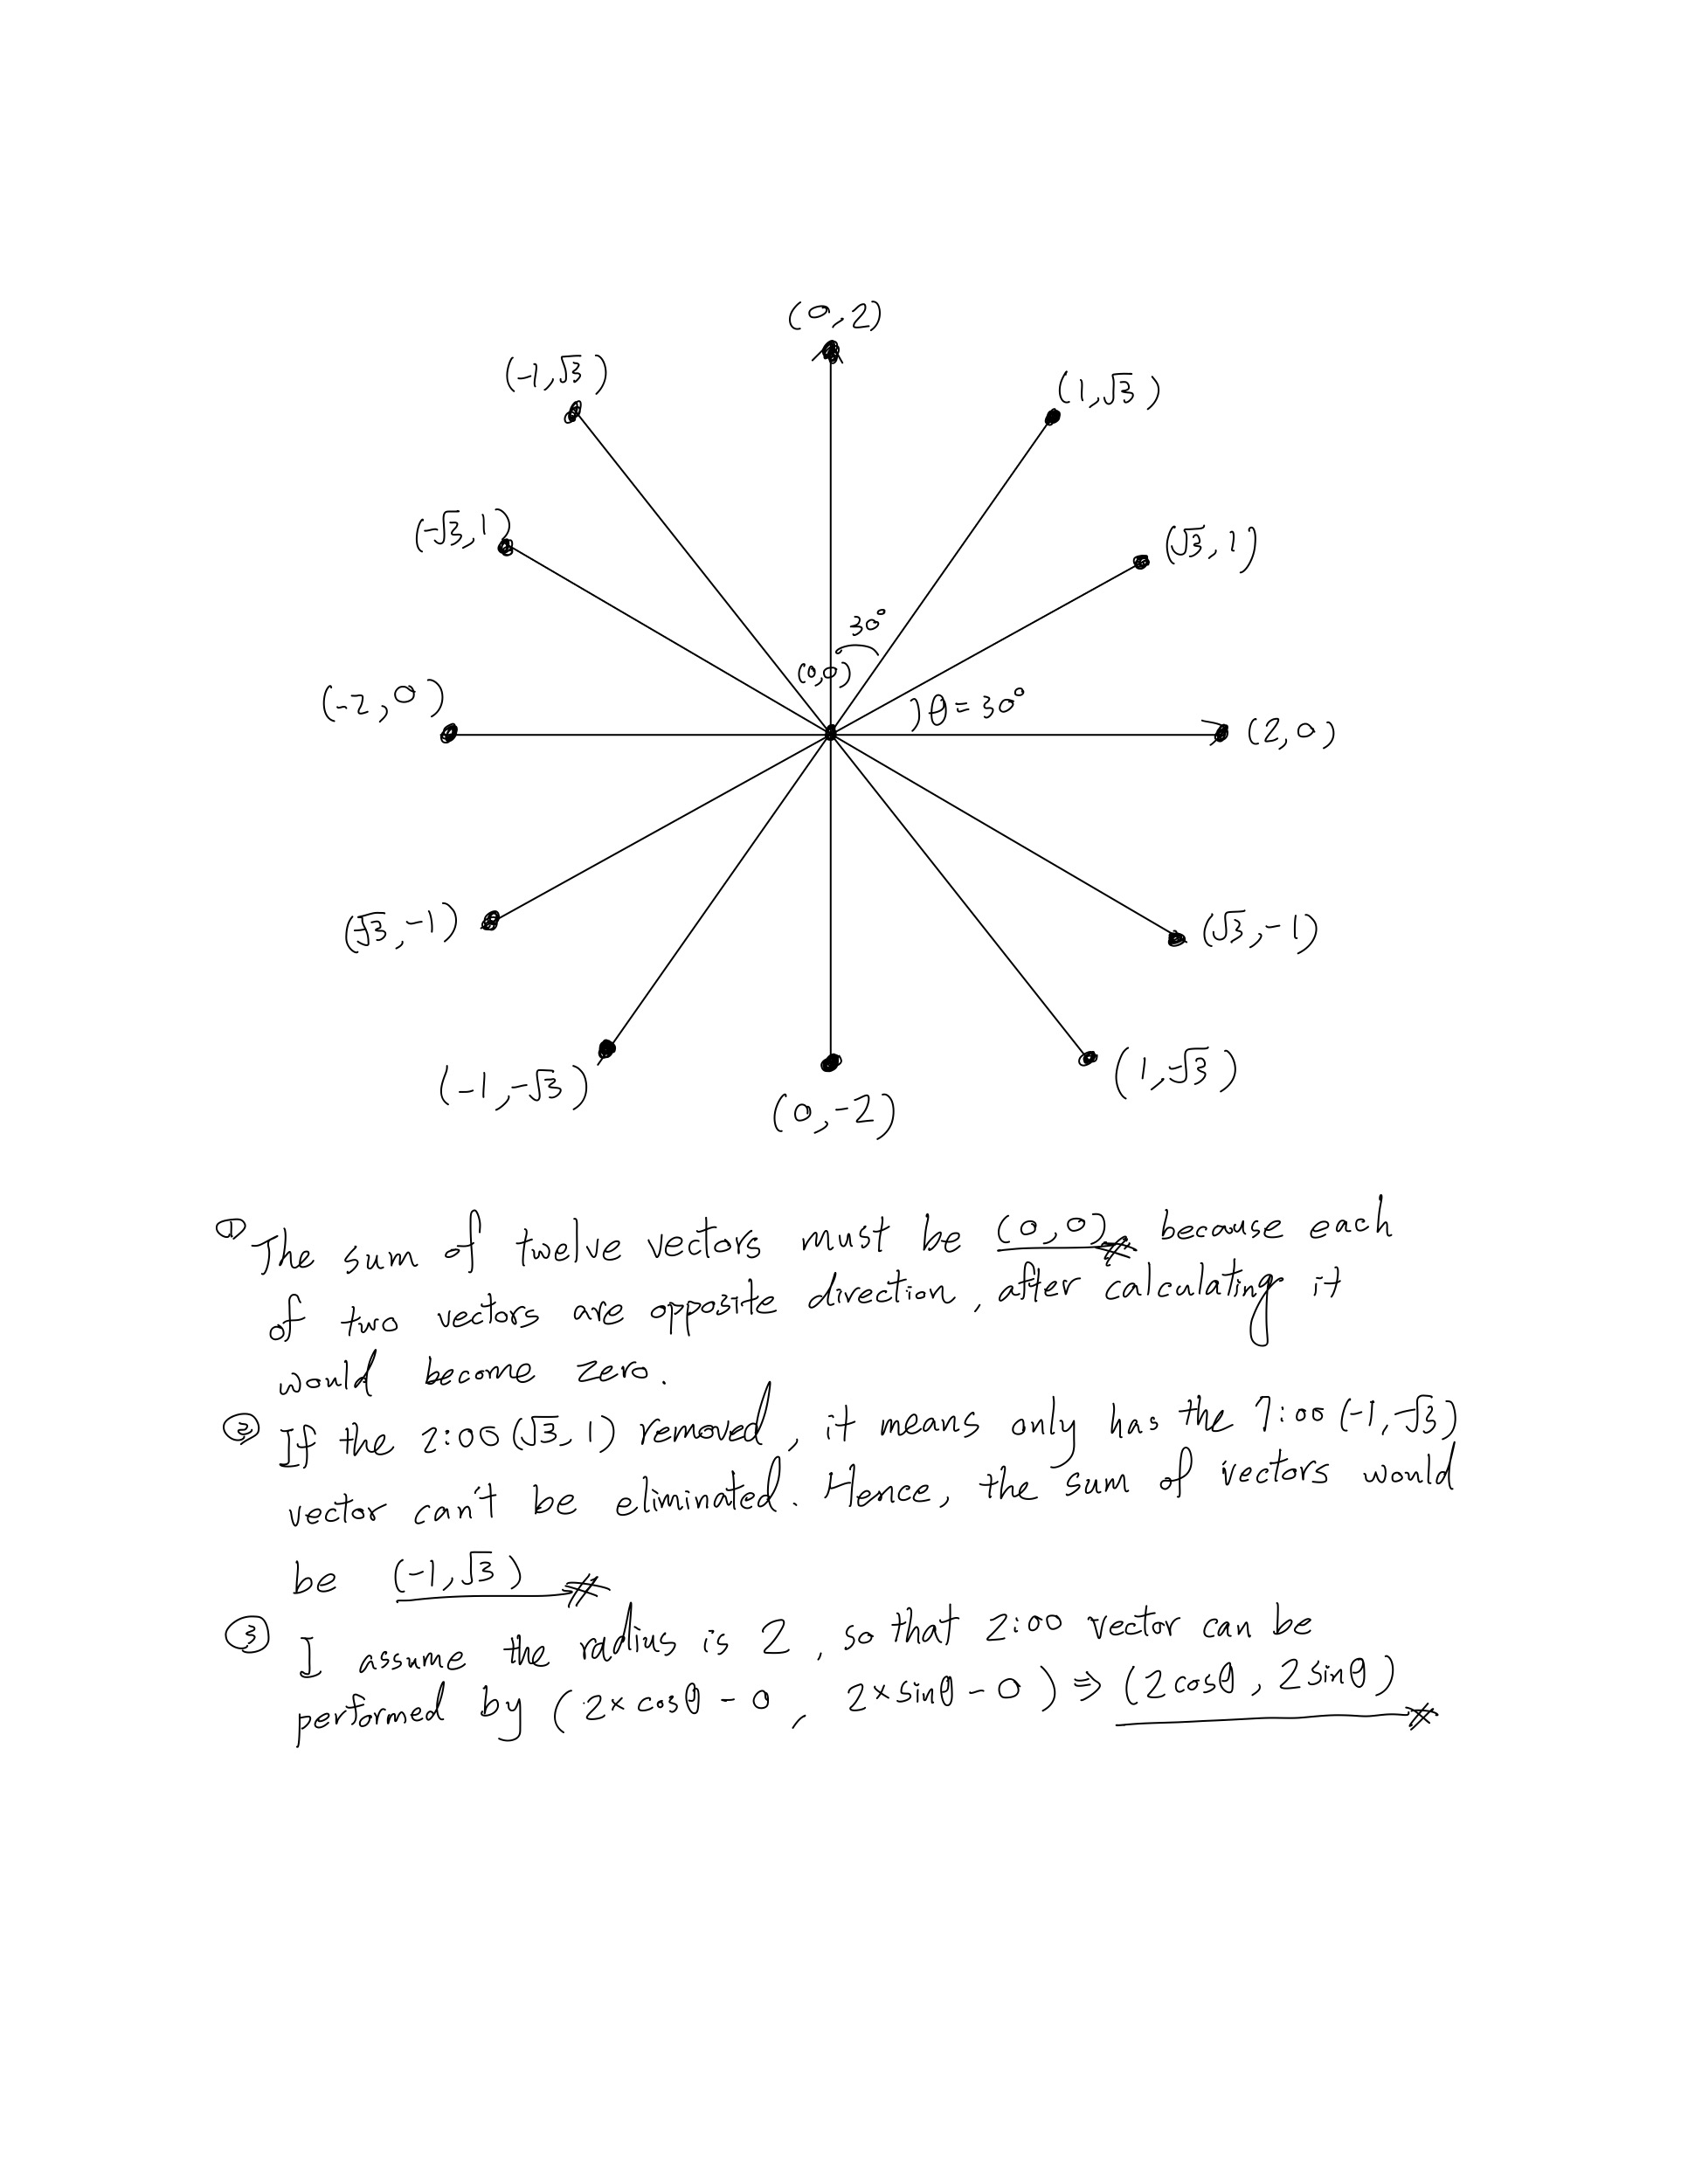 (0,2)
(-1,√3)
(1,√3)
(-√3,1)
(√3,1)
30°
(0,0)
(-2,0)
θ=30°
(2,0)
(-√3,-1)
(√3,-1)
(-1,-√3)
(1,-√3)
(0,-2)
① The sum of twelve vectors must be (0,0) because each
of two vectors are opposite direction, after calculating it
would become zero.
② If the 2:00 (√3,1) removed, it means only has the 7:00 (-1,-√3)
vector can't be eliminated. Hence, the sum of vectors would
be (-1,√3)
③ I assume the radius is 2, so that 2:00 vector can be
performed by (2×cosθ-0, 2×sinθ-0) ⇒ (2cosθ, 2sinθ)